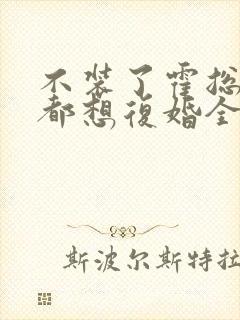 不装了霍总
都想復婚全
斯波尔斯特拉